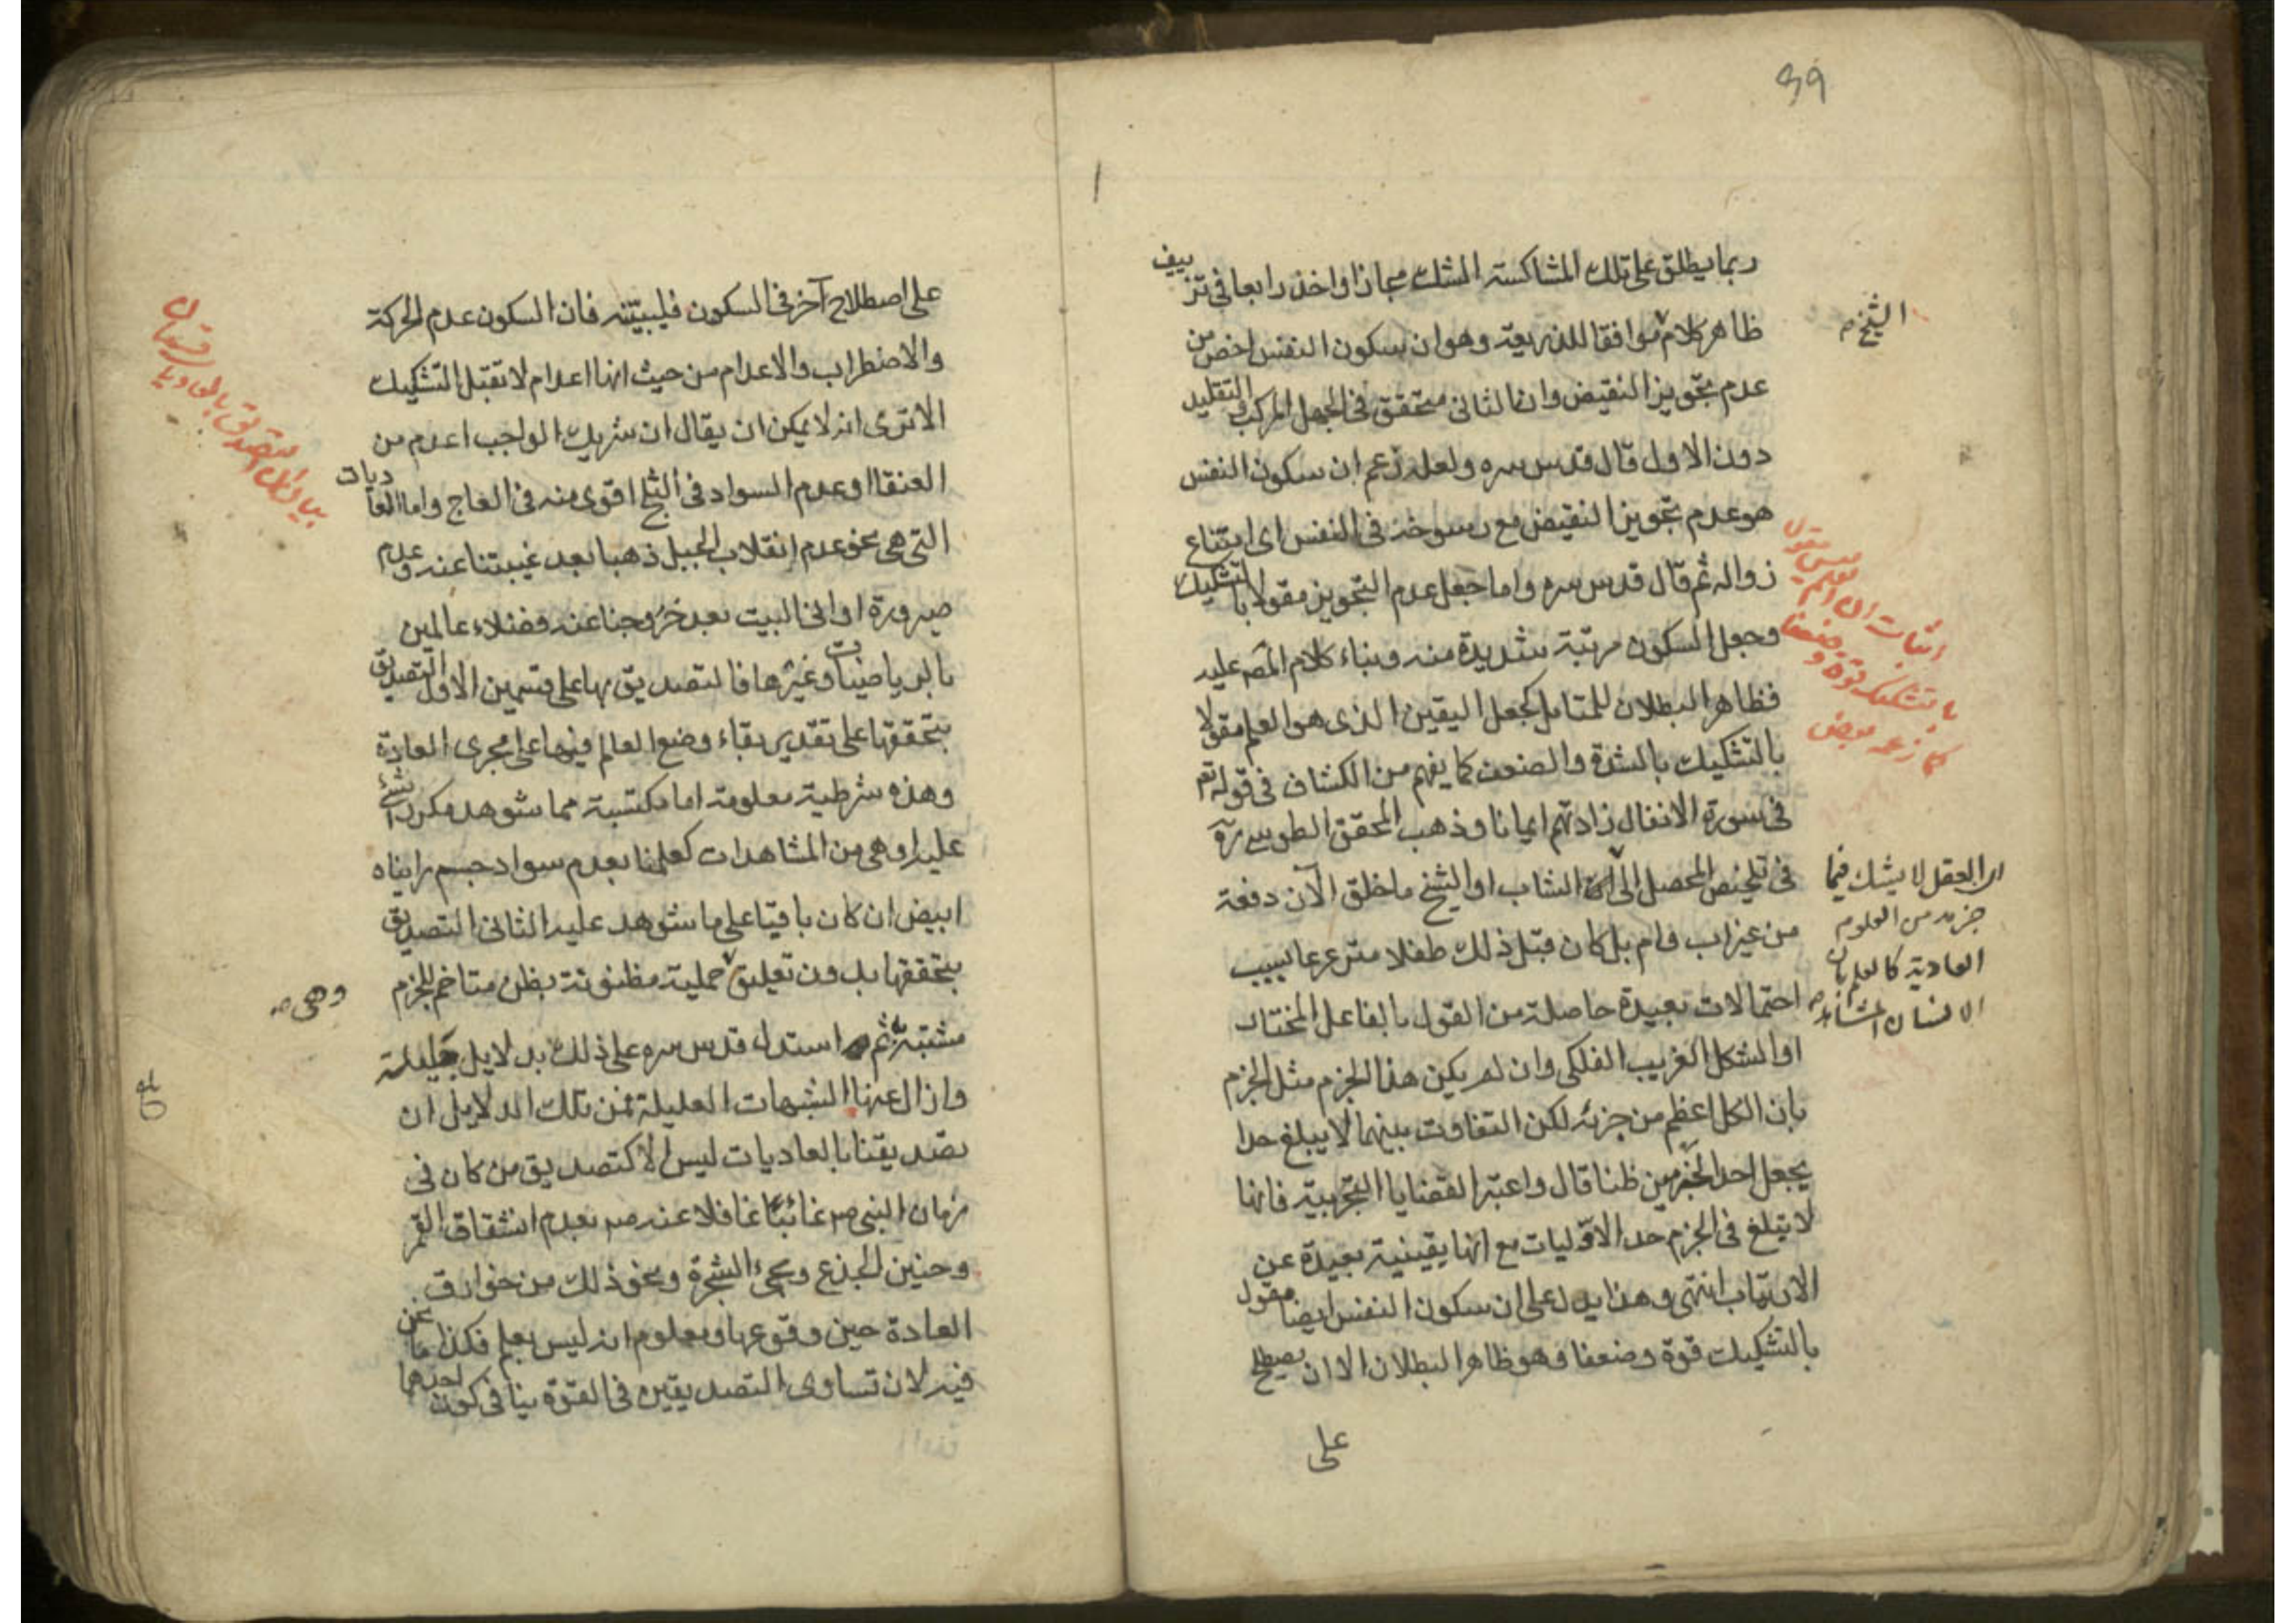 39
ربما يطلق على تلك المشاكسة الشك مجازا واخذ رابعا في تزييف
ظاهر كلام الشيخ موافقا للذريعة وهو ان سكون النفس اخص من
عدم تجويز النقيض وان الثاني متحقق في الجهل المركب والتقليد
دون الاول قال قدس سره ولعله زعم ان سكون النفس
هو عدم تجويز النقيض مع رسوخه في النفس اى امتناع
زواله ثم قال قدس سره واما جعل عدم التجويز مقولا بالتشكيك
وجعل السكون مرتبة شديدة منه وبناء كلام المصه عليه
فظاهر البطلان للمتامل كجعل اليقين الذى هو العلم مقولا
بالتشكيك بالشدة والضعف كما يفهم من الكشاف في قوله تعم
في سورة الانفال زادتهم ايمانا وذهب المحقق الطوسي ره
في تلخيص المحصل الى ان العقل لا يشك فيما
جزم به من العلوم
العادية كالعلم بان
الانسان المشاهد
الشاب او الشيخ ما خلق الآن دفعة
من غير اب وام بل كان قبل ذلك طفلا مترعرعا بسبب
احتمالات بعيدة حاصلة من القول بالفاعل المختار
او الشكل الغريب الفلكى وان لم يكن هذا الجزم مثل الجزم
بان الكل اعظم من جزئه لكن التفاوت بينهما لا يبلغ حدا
يجعل احد الجزمين ظنا قال واعتبر القضايا التجربية فانها
لا تبلغ في الجزم حد الاوليات مع انها يقينية بعيدة عن
الارتياب انتهى وهذا يدل على ان سكون النفس ايضا مقول
بالتشكيك قوة وضعفا وهو ظاهر البطلان الا ان يصطلح
على
اثبات ان العلم ليس مقول
بالتشكيك قوة وضعفا
كما زعمه بعض
على اصطلاح آخر في السكون فليبينه فان السكون عدم الحركة
والاضطراب والاعدام من حيث انها اعدام لا تقبل التشكيك
الا ترى انه لا يمكن ان يقال ان شريك الواجب اعدم من
العنقا او عدم السواد في الثلج اقوى منه في العاج واما العاديات
التى هى نحو عدم انقلاب الجبل ذهبا بعد غيبتنا عنه وعدم
صيرورة اوانى البيت بعد خروجنا عنه فضلاء عالمين
بالرياضيات وغيرها فالتصديق بها على قسمين الاول التصديق
بتحققها على تقدير بقاء وضع العالم فيها على مجرى العادة
وهذه شرطية معلومة اما مكتسبة مما شوهد مكررا شئ
عليه او هى من المشاهدات كعلمنا بعدم سواد جسم رايناه
ابيض ان كان باقيا على ما شوهد عليه الثانى التصديق
بتحققها بدون تعليق وهى حملية مظنونة بظن متاخم للجزم
مشتبه ثم استدل قدس سره على ذلك بدلايل جليلة
وازال عنها الشبهات العليلة فمن تلك الدلايل ان
تصديقنا بالعاديات ليس الا كتصديق من كان في
زمان النبى ص غائبا غافلا عنه ص بعدم انشقاق القمر
وحنين الجذع ومجئ الشجرة ونحو ذلك من خوارق
العادة حين وقوعها ومعلوم انه ليس بعلم فكذا ما نحن
فيه لان تساوى التصديقين في القوة ينافى كون احدهما
بيان ان التصديق بالعاديات